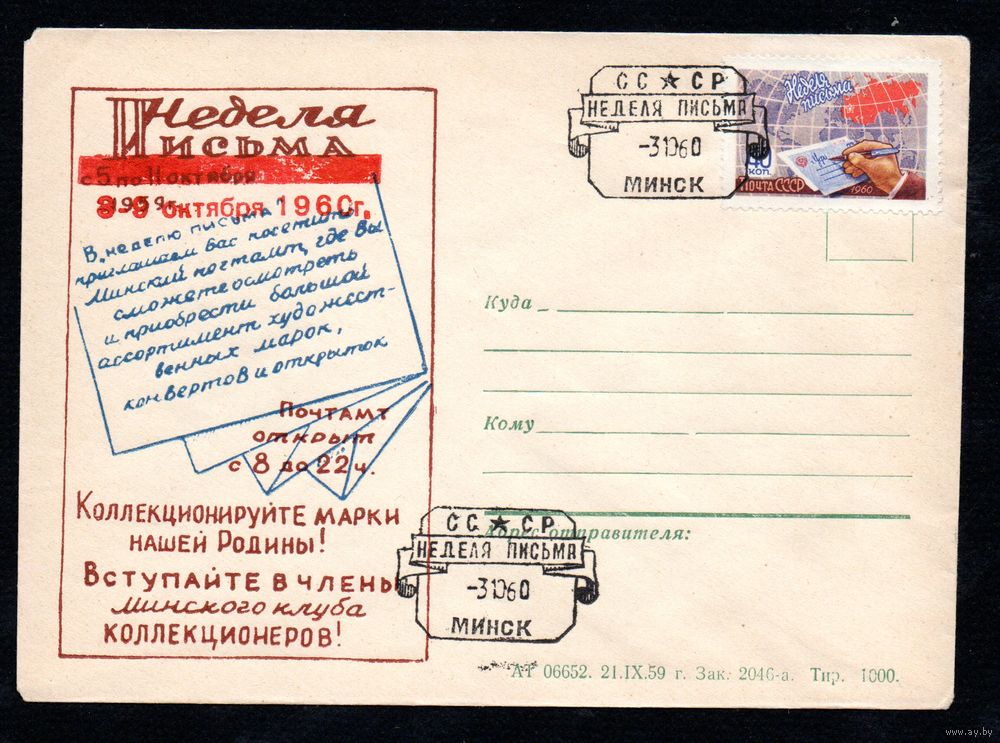 Неделя
Письма
с 5 по 11 октября
1959 г.
3-9 октября 1960г.
В неделю письма
приглашаем Вас посетить
Минский почтамт, где Вы
сможете осмотреть
и приобрести большой
ассортимент художест-
венных марок,
конвертов и открыток
Почтамт
открыт
с 8 до 22 ч.
Коллекционируйте марки
нашей Родины!
Вступайте в члены
Минского клуба
коллекционеров!
СС СР
НЕДЕЛЯ ПИСЬМА
-31060
МИНСК
Неделя
письма
40
КОП.
ПОЧТА СССР
1960
Куда
Кому
Адрес отправителя:
СС СР
НЕДЕЛЯ ПИСЬМА
-31060
МИНСК
АТ 06652. 21.IX.59 г. Зак. 2046-а. Тир. 1000.
www.ay.by